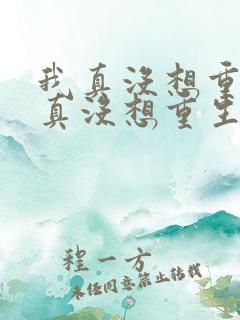 我真没想重
真没想重生
程一方
未经同意禁止转载